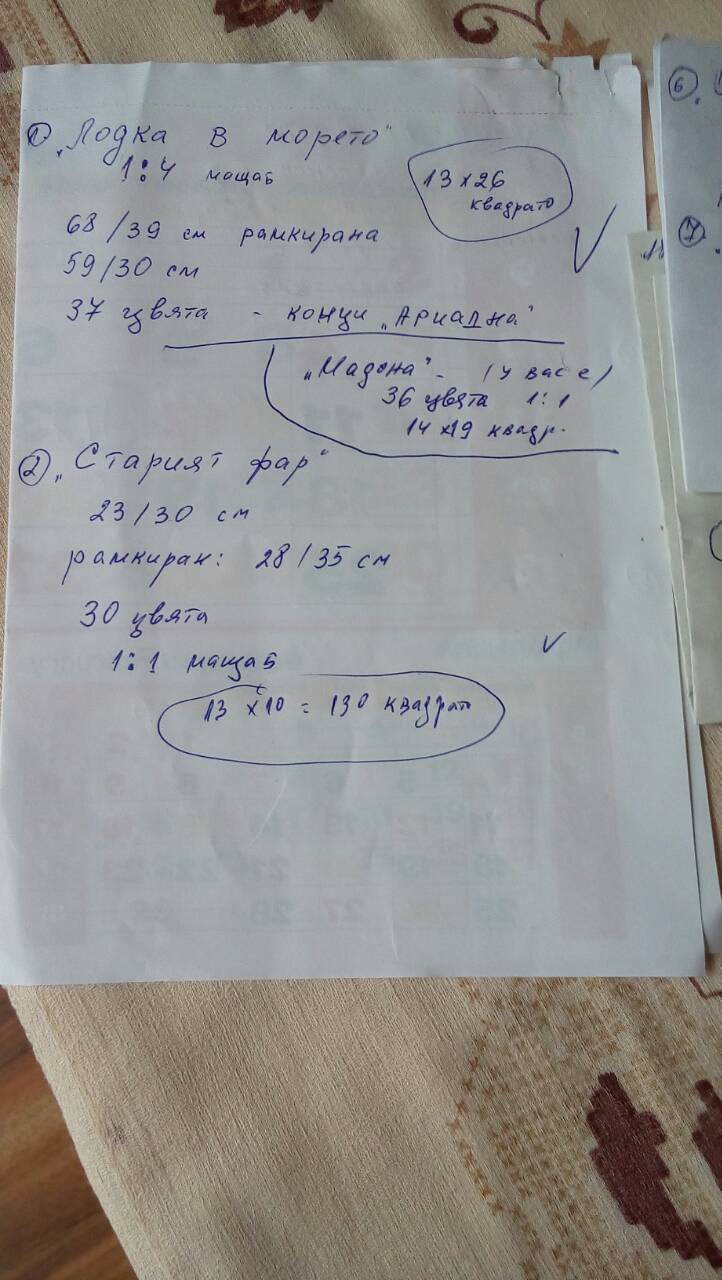 ① „Лодка в морето“
1:4 мащаб
13 x 26
квадрата
68/39 см рамкирана
59/30 см
37 цвята - конци „Ариадна“
„Мадона“ - (у вас е)
36 цвята 1:1
14 x 19 квадр.
② „Старият фар“
23/30 см
рамкиран: 28/35 см
30 цвята
1:1 мащаб
13 x 10 = 130 квадрата
6.
7.